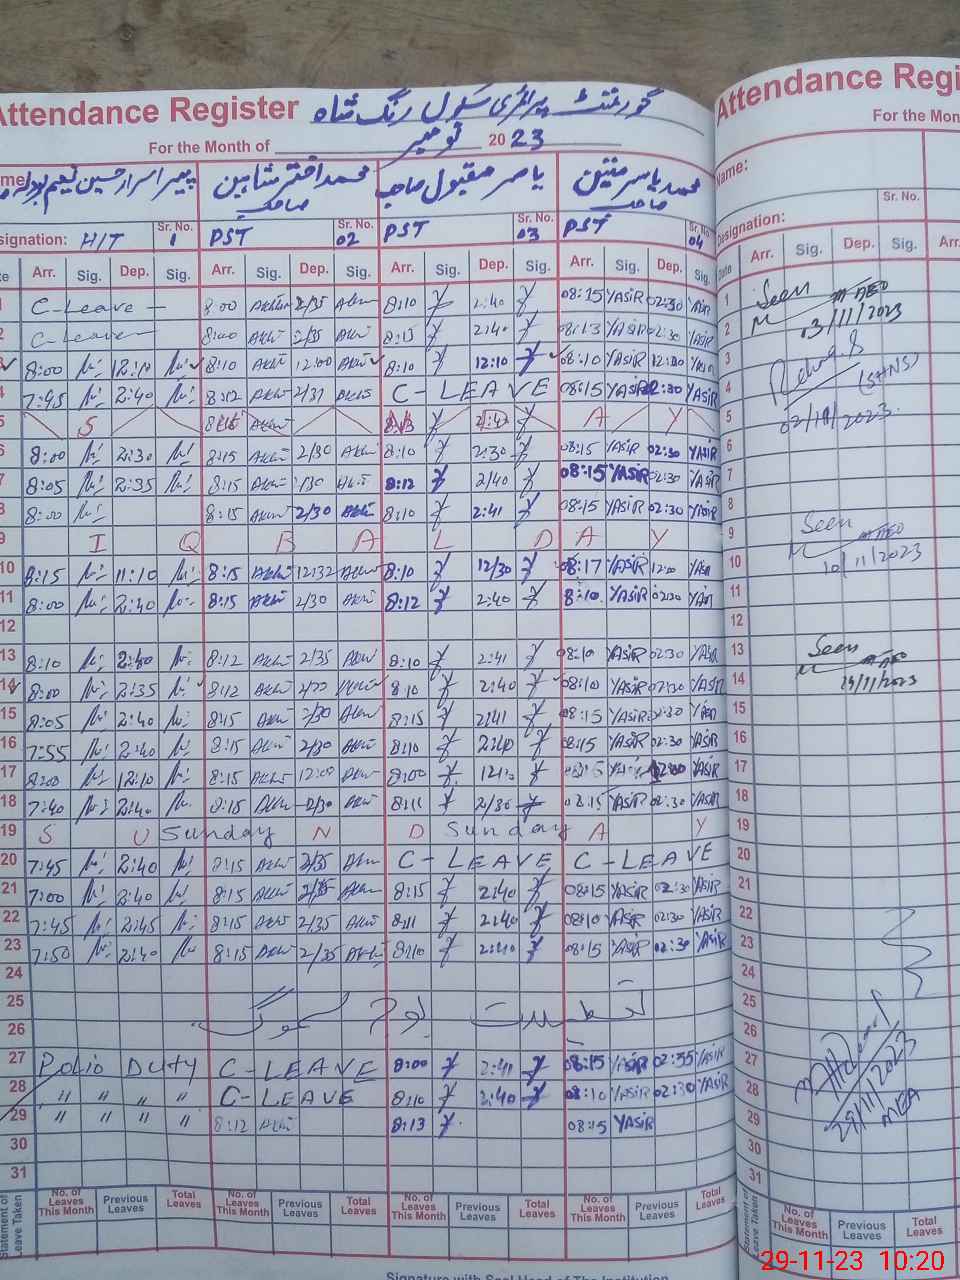 Attendance Register گورنمنٹ پرائمری سکول رنگ شاہ
For the Month of نومبر 2023
پیر اسرار حسین نعیم محمد اختر شاہین صاحب یاسر مقبول صاحب محمد یاسر متین صاحب
Designation: HIT Sr. No. 1 PST Sr. No. 02 PST Sr. No. 03 PST Sr. No. 04
Arr. Sig. Dep. Sig. Arr. Sig. Dep. Sig. Arr. Sig. Dep. Sig. Arr. Sig. Dep. Sig.
1 C-Leave 8:00 2/35 8:10 2:40 08:15 YASIR 02:30 YASIR
2 C-Leave 8:00 2/35 8:15 2:40 08:13 YASIR 02:30 YASIR
3 8:00 12:10 8:10 12:00 8:10 12:10 08:10 YASIR 12:00 YASIR
4 7:45 2:40 8:12 2/31 C-LEAVE 08:15 YASIR 02:30 YASIR
5 S A Y
6 8:00 2:30 8:15 2/30 8:10 2:30 08:15 YASIR 02:30 YASIR
7 8:05 2:35 8:15 2/30 8:12 2/40 08:15 YASIR 02:30 YASIR
8 8:00 8:15 2/30 8:10 2:41 08:15 YASIR 02:30 YASIR
9 I Q B A L D A Y
10 8:15 11:10 8:15 12:32 8:10 12/30 08:17 YASIR 12:00 YASIR
11 8:00 2:40 8:15 2/30 8:12 2:40 8:10 YASIR 02:30 YASIR
12
13 8:10 2:40 8:12 2/35 8:10 2:41 08:10 YASIR 02:30 YASIR
14 8:00 2:35 8:12 8:10 2:40 08:10 YASIR 02:30 YASIR
15 8:05 2:40 8:15 2/30 8:15 2:41 08:15 YASIR 02:30 YASIR
16 7:55 2:40 8:15 2/30 8:10 2:40 08:15 YASIR 02:30 YASIR
17 8:00 12:10 8:15 12:00 8:00 12:10 YASIR 12:00 YASIR
18 7:40 2:40 8:15 2/30 8:11 2/30 08:15 YASIR 02:30 YASIR
19 S U Sunday N D Sunday A Y
20 7:45 2:40 8:15 2/35 C-LEAVE C-LEAVE
21 7:00 2:40 8:15 2/35 8:15 2:40 08:15 YASIR 02:30 YASIR
22 7:45 2:45 8:15 2/35 8:11 2:40 08:10 YASIR 02:30 YASIR
23 7:50 2:40 8:15 2/35 8:10 2:40 08:15 YASIR 02:30 YASIR
24
25
26
27 Polio Duty C-LEAVE 8:00 2:41 08:15 YASIR 02:35 YASIR
28 " " " " C-LEAVE 8:10 2:40 08:10 YASIR 02:30 YASIR
29 " " " " 8:12 8:13 08:15 YASIR
30
31
Statement of Leave Taken No. of Leaves This Month Previous Leaves Total Leaves No. of Leaves This Month Previous Leaves Total Leaves No. of Leaves This Month Previous Leaves Total Leaves No. of Leaves This Month Previous Leaves Total Leaves
Signature with Seal Head of The Institution
Attendance Regi
For the Mon
Name:
Designation: Sr. No.
Date Arr. Sig. Dep. Sig. Arr.
1 Seen
2 AEO 03/11/2023
3
4 (SHNS)
5
6
7
8
9 Seen
10 AEO 10/11/2023
11
12
13 Seen
14 AEO 14/11/2023
15
16
17
18
19
20
21
22
23
24
25
26
27
28 29/11/2023
29 MEA
30
31
Statement of Leave Taken No. of Leaves This Month Previous Leaves Total Leaves
29-11-23 10:20